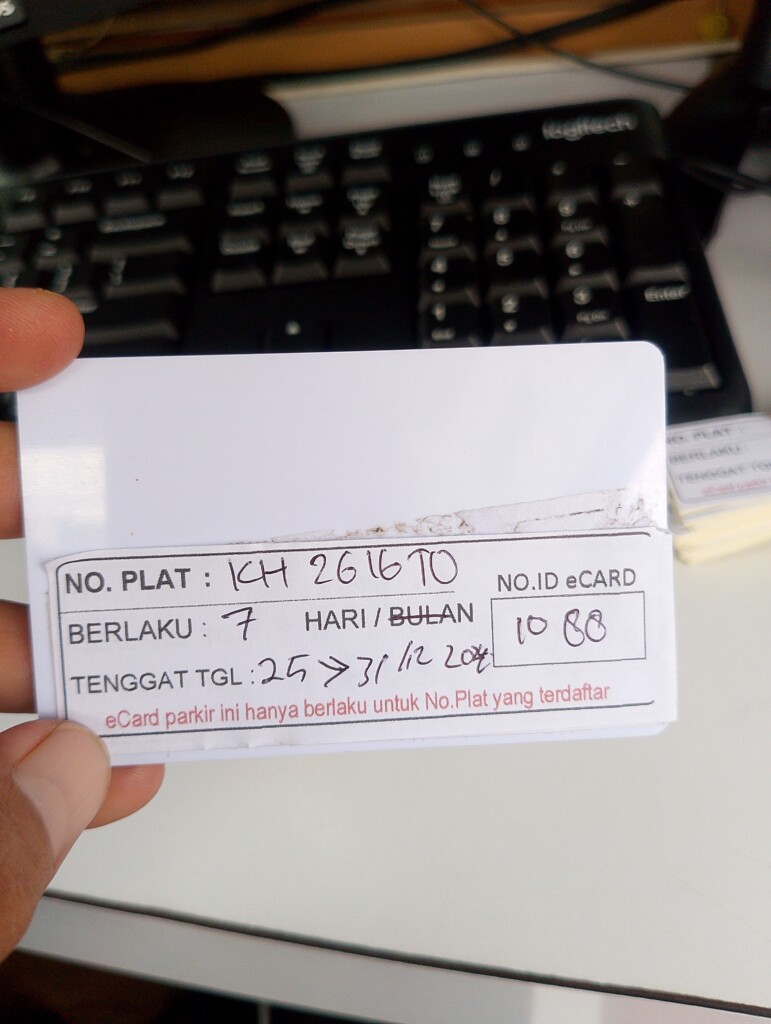 logitech
Enter
NO. PLAT : KH 2616 TO
BERLAKU : 7 HARI / BULAN
TENGGAT TGL : 25 > 31/12
NO.ID eCARD
1088
eCard parkir ini hanya berlaku untuk No.Plat yang terdaftar
NO. PLAT :
BERLAKU
TENGGAT TGL